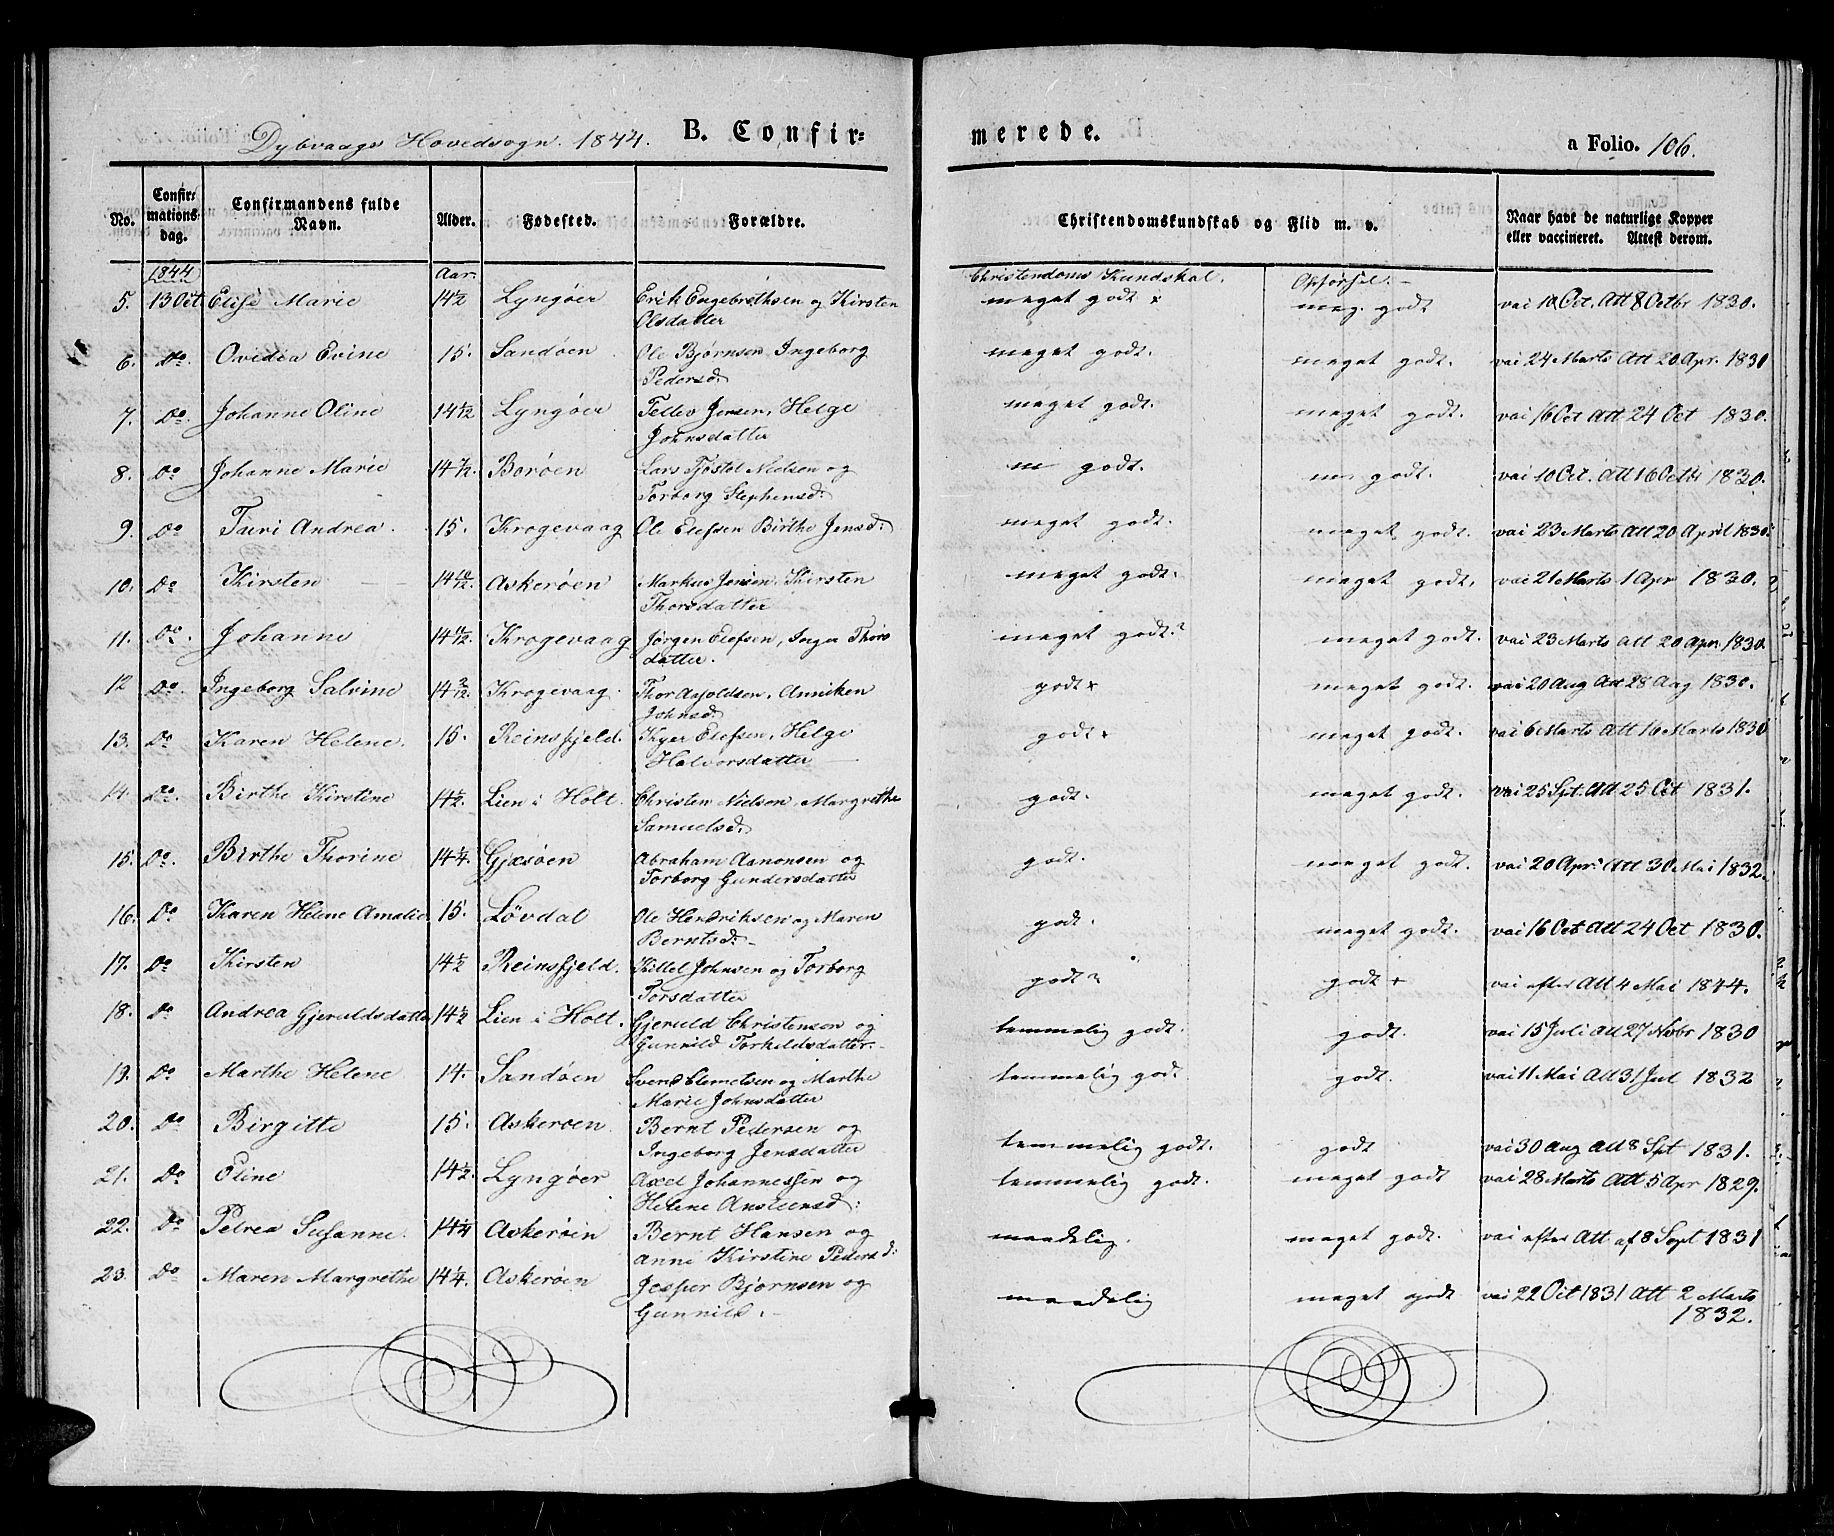 Dybvaags Hovedsogn. 1844. B. Confir=
merede. a Folio. 106.
No. Confir= mations= dag. Confirmandens fulde Navn. Alder. Fødested. Forældre. Christendomskundskab og Flid m. v. Naar havt de naturlige Kopper eller vaccineret. Attest derom.
1844 Aar. Christendoms Kundskab. Opførsel. –
5. 13 Oct. Elise Marie 14 1/2 Lyngøer Erik Engebrethsen og Kirsten meget godt x meg. godt vac 10 Oct. Att 8 Octbr 1830.
Olsdatter
6. Do. Ovidia Evine 15. Sandøen Ole Bjørnsen, Ingeborg meget godt. meget godt. vac 24 Marts Att 20 Apr. 1830
Pedersd:
7. Do. Johanne Oline 14 1/2 Lyngøer Tellev Jensen, Helge meget godt. meget godt. vac 16 Oct Att 24 Oct 1830.
Johnsdatter
8. Do Johanne Marie 14 1/2. Borøen Lars Tjøstol Nielsen og m godt. m godt. vac 10 Oct. Att 16 Octbr 1830.
Torborg Stephensd:
9. Do Turi Andrea. 15. Krogevaag Ole Elefsen Birthe Jensd: meget godt. meget godt. vac 23 Marts Att 20 April 1830.
10. Do Kirsten 14 10/12. Askerøen Markus Jensen, Kirsten meget godt. meget godt. vac 21 Marts 1 Apr 1830.
Thorsdatter
11. Do. Johanne 14 11/12. Krogevaag Jørgen Elefsen, Inga Thors meget godt. meget godt. vac 23 Marts Att 20 Apr. 1830.
datter.
12 Do. Ingeborg Salvine 14 2/12. Krogevaag. Thor Asjoldsen, Anniken godt x meget godt. vac 20 Aug Att 28 Aug 1830.
Johnsd:
13. Do Karen Helene. 15. Reinsfjeld. Kyer Elefsen, Helge godt x meget godt. vac 6 Marts Att 16 Marts 1830
Halvorsdatter
14. Do. Birthe Kirstine 14 1/2. Lien i Holt. Christen Nielsen, Margrethe godt. meget godt. vac 25 Spt. Att 25 Oct 1831.
Samuelsd:
15. Do. Birthe Thorine 14 1/4. Gjæsøen Abraham Aanonsen og godt. meget godt. vac 20 Apr Att 30 Mai 1832.
Torborg Gundersdatter
16. Do Karen Helene Amalie 15. Løvdal Ole Hendriksen og Maren godt. meget godt. vac 16 Oct Att 24 Oct 1830.
Berntsd:
17. Do Kirsten 14 1/2 Reinsfjeld. Kittel Johnsen og Torborg godt godt + vac efter Att 4 Mai 1844.
Torsdatter
18. Do Andrea Gjeruldsdatter 14 1/2 Lien i Holt. Gjeruld Christenson og temmelig godt. godt. vac 15 Juli Att 27 Novbr 1830
Gunnild Torkildsdatter.
19. Do Marthe Helene 14. Sandøen Svend Clemetsen og Marthe temmelig godt. godt. vac 11 Mai Att 31 Jul 1832
Marie Johnsdatter
20. Do Birgitte 15. Askerøen. Bernt Pedersen og temmelig godt. godt vac 30 Aug Att 8 Spt 1831.
Ingeborg Jensdatter
21. Do Eline 14 1/2. Lyngøer Axel Johannessen og temmelig godt. meget godt vac 28 Marts Att 5 Apr 1829.
Helene Ansteensd:
22. Do Petrea Susanne. 14 1/4 Askerøen Bernt Hansen og maadelig. meget godt. vac efter Att af 8 Sept 1831
Anne Kirstine Pedersd:
23. Do Maren Margrethe 14 1/4. Askerøen Jesper Bjørnsen og maadelig meget godt vac 22 Oct 1831 Att 2 Marts
Gunnild. 1832.